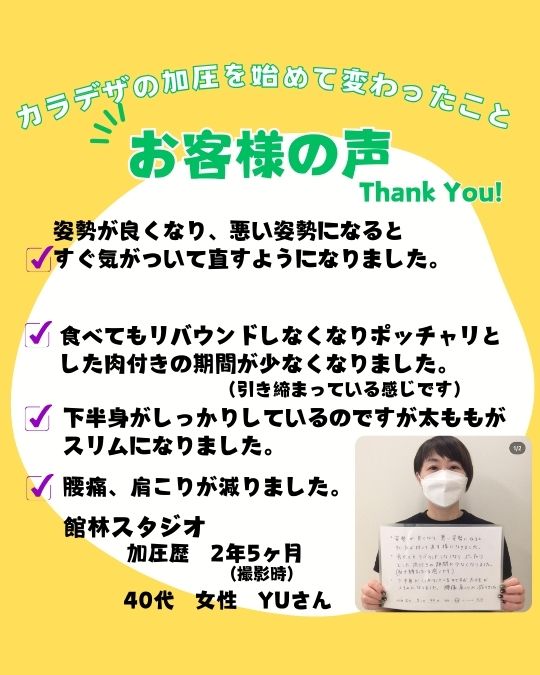 カラデザの加圧を始めて変わったこと
お客様の声
Thank You!
姿勢が良くなり、悪い姿勢になると
すぐ気がついて直すようになりました。
食べてもリバウンドしなくなりポッチャリと
した肉付きの期間が少なくなりました。
（引き締まっている感じです）
下半身がしっかりしているのですが太ももが
スリムになりました。
腰痛、肩こりが減りました。
館林スタジオ
加圧歴　2年5ヶ月
（撮影時）
40代　女性　YUさん
1/2